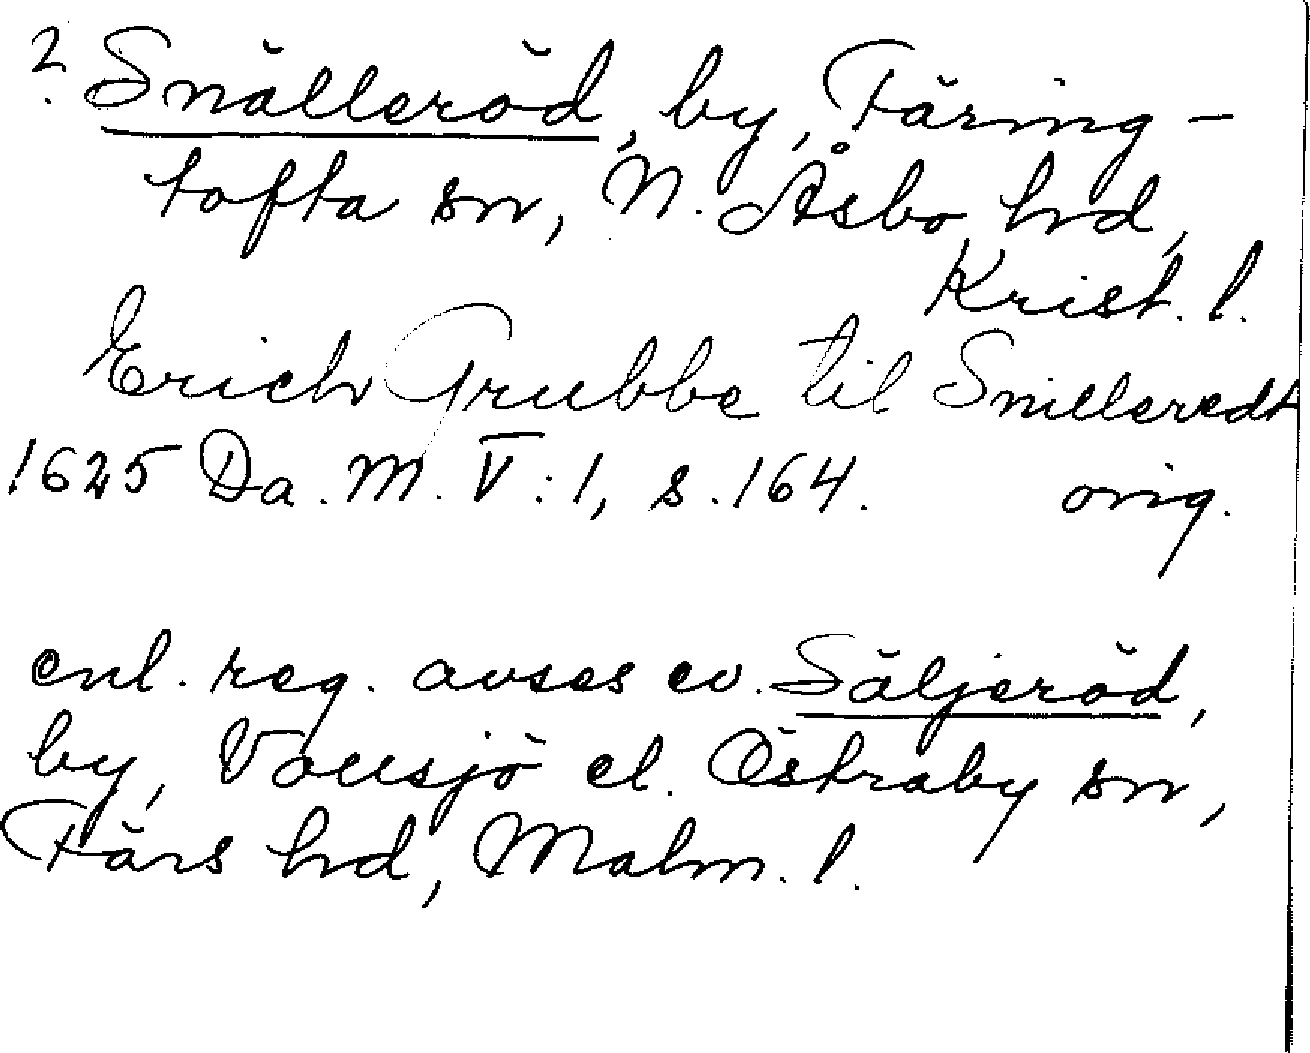 ? Snälleröd, by, Färing-
tofta sn, N. Åsbo hd,
Krist. l.
Erich Grubbe til Snilleredt
1625 Da. M. V: 1, s. 164. orig.
enl. reg. avses ev. Säljeröd,
by, Vollsjö el. Östraby sn,
Färs hd, Malm. l.